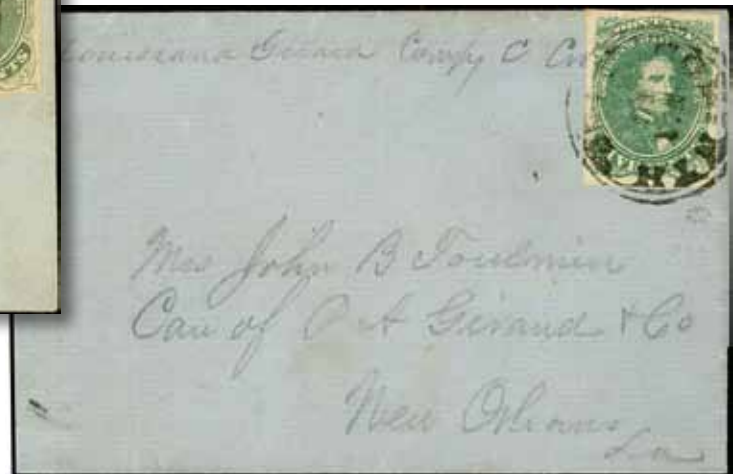 Louisiana Guard Compy C
Mrs John B Toulmin
Care of O A Giraud & Co
New Orleans
La